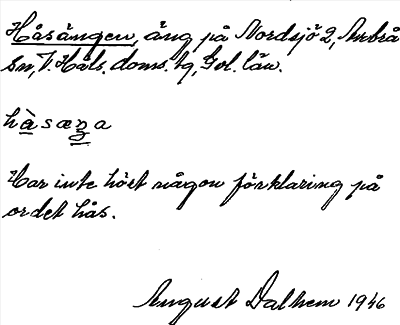 Håsängen, äng på Nordsjö 2, Arbrå
sn, V. Häls. doms. tg, Gvl. län.
hàsæza
Har inte hört någon förklaring på
ordet hås.
August Dalhem 1946